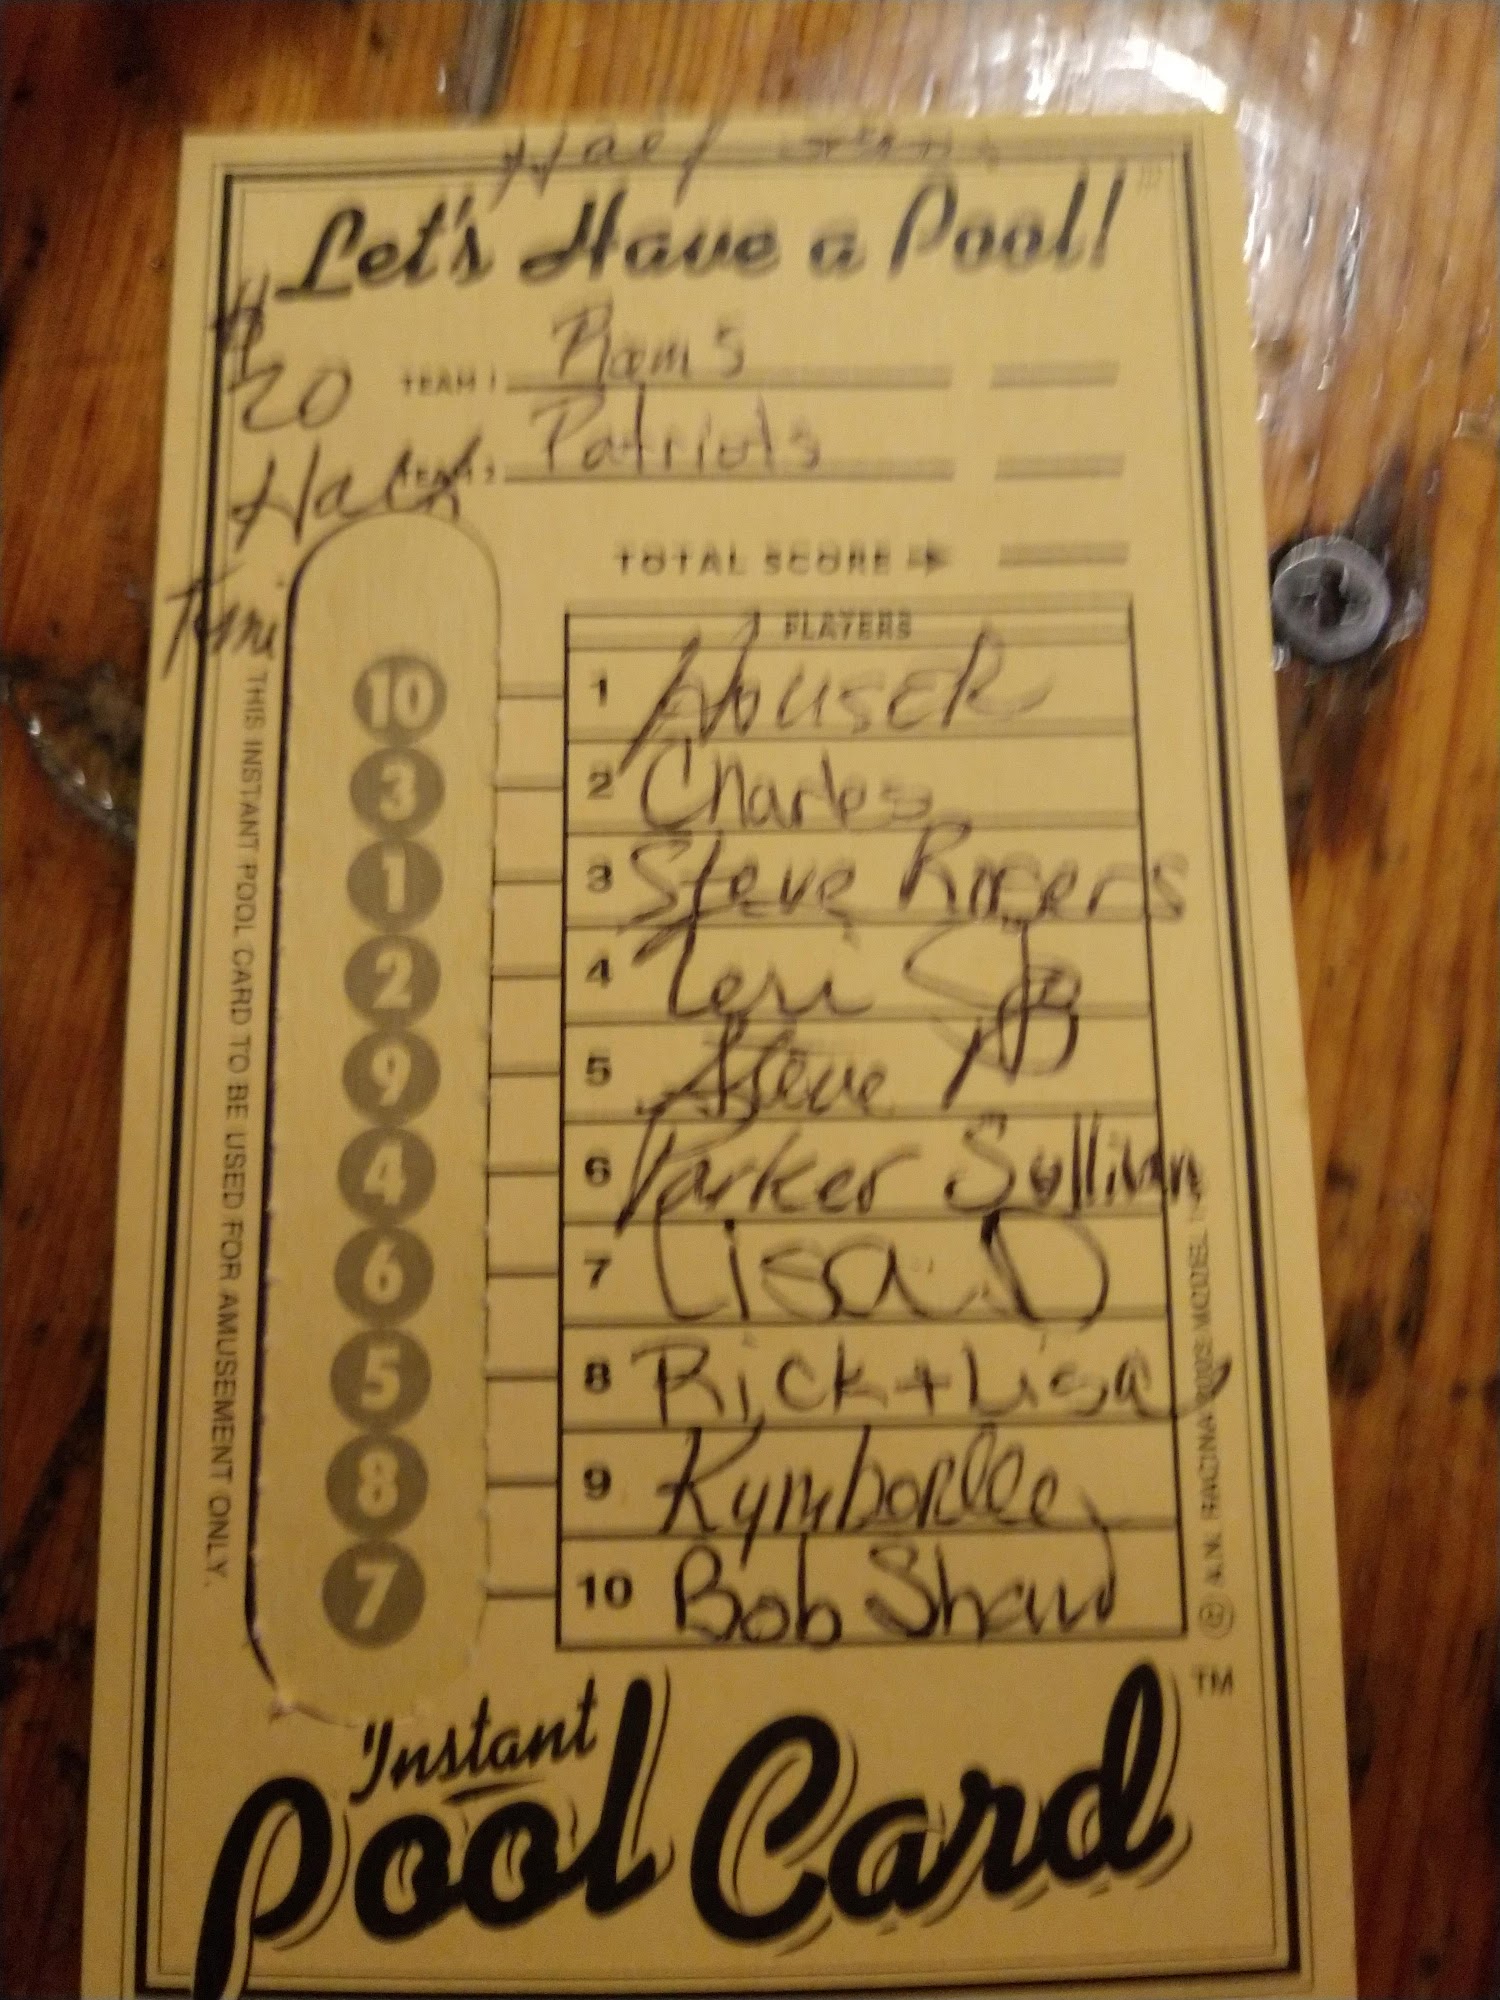 Half Time
Let's Have a Pool!
$
20
TEAM 1 Rams
TEAM 2 Patriots
Half
TOTAL SCORE →
PLAYERS
10 1 Houser
3 2 Charles
1 3 Steve Rogers
2 4 Teri
9 5 Steve
4 6 Parker Sullivan
6 7 Lisa D
5 8 Rick + Lisa
8 9 Kymberlee
7 10 Bob Shaw
THIS INSTANT POOL CARD TO BE USED FOR AMUSEMENT ONLY.
Instant
Pool Card TM